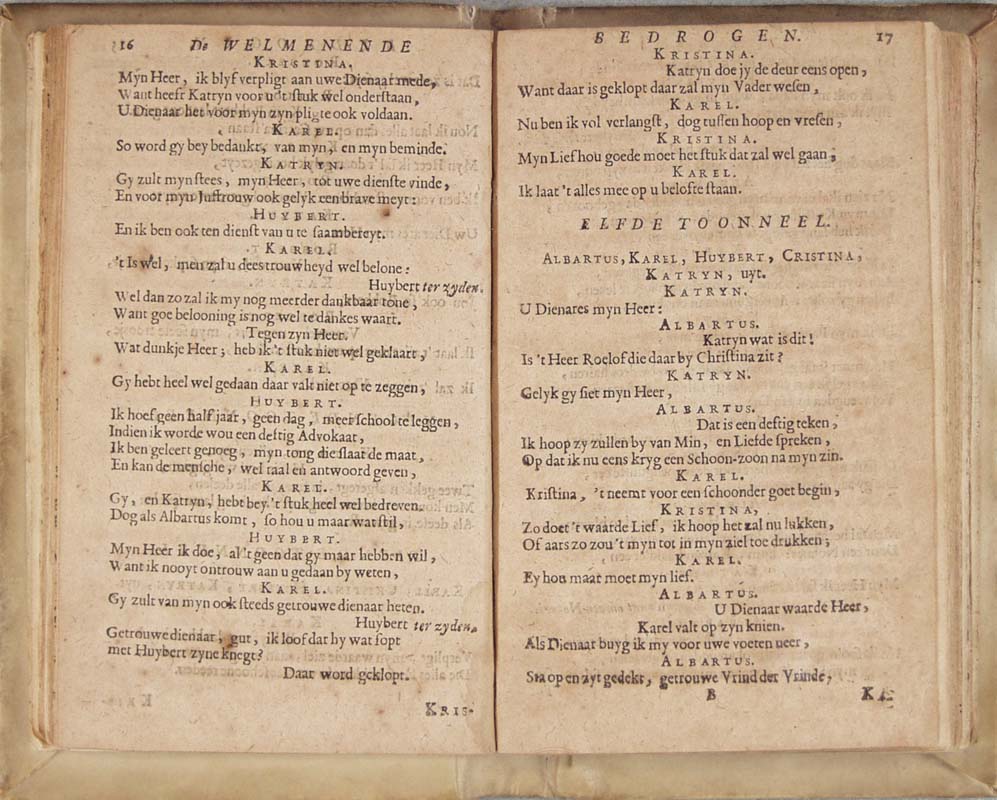 16 De WELMENENDE
KRISTINA.
Myn Heer, ik blyf verpligt aan uwe Dienaar mede,
Want heeft Katryn voor u 't stuk wel onderstaan,
U Dienaar het voor myn zyn pligte ook voldaan.
KAREL.
So word gy bey bedankt, van myn, en myn beminde.
KATRYN.
Gy zult myn stees, myn Heer, tot uwe dienste vinde,
En voor myn Juffrouw ook gelyk een brave meyt:
HUYBERT.
En ik ben ook ten dienst van u te saambereyt.
KAREL.
't Is wel, men zal u dees trouwheyd wel belone:
Huybert ter zyden.
Wel dan zo zal ik my nog meerder dankbaar tone,
Want goe belooning is nog wel te dankes waart.
Tegen zyn Heer.
Wat dunkje Heer; heb ik 't stuk niet wel geklaart,
KAREL.
Gy hebt heel wel gedaan daar valt niet op te zeggen,
HUYBERT.
Ik hoef geen half jaar, geen dag, meer school te leggen,
Indien ik worde wou een deftig Advokaat,
Ik ben geleert genoeg, myn tong die slaat de maat,
En kan de mensche, wel taal en antwoord geven,
KAREL.
Gy, en Katryn, hebt bey 't stuk heel wel bedreven.
Dog als Albartus komt, so hou u maar wat stil,
HUYBERT.
Myn Heer ik doe, al 't geen dat gy maar hebben wil,
Want ik nooyt ontrouw aan u gedaan by weten,
KAREL.
Gy zult van myn ook steeds getrouwe dienaar heten.
Huybert ter zyden.
Getrouwe dienaar, gut, ik loof dat hy wat fopt
met Huybert zyne knegt?
Daar word geklopt.
KRIS-
BEDROGEN. 17
KRISTINA.
Katryn doe jy de deur eens open,
Want daar is geklopt daar zal myn Vader wesen,
KAREL.
Nu ben ik vol verlangst, dog tussen hoop en vresen,
KRISTINA.
Myn Lief hou goede moet het stuk dat zal wel gaan,
KAREL.
Ik laat 't alles mee op u belofte staan.
ELFDE TOONNEEL.
ALBARTUS, KAREL, HUYBERT, CRISTINA,
KATRYN, uyt.
KATRYN.
U Dienares myn Heer:
ALBARTUS.
Katryn wat is dit!
Is 't Heer Roelof die daar by Christina zit?
KATRYN.
Gelyk gy siet myn Heer,
ALBARTUS.
Dat is een deftig teken,
Ik hoop zy zullen by van Min, en Liefde spreken,
Op dat ik nu eens kryg een Schoon-zoon na myn zin.
KAREL.
Kristina, 't neemt voor een schoonder goet begin,
KRISTINA,
Zo doet 't waarde Lief, ik hoop het zal nu lukken,
Of aars zo zou 't myn tot in myn ziel toe drukken;
KAREL.
Ey hou maar moet myn lief.
ALBARTUS.
U Dienaar waarde Heer,
Karel valt op zyn knien.
Als Dienaar buyg ik my voor uwe voeten neer,
ALBARTUS.
Sta op en zyt gedekt, getrouwe Vrind der Vrinde,
B